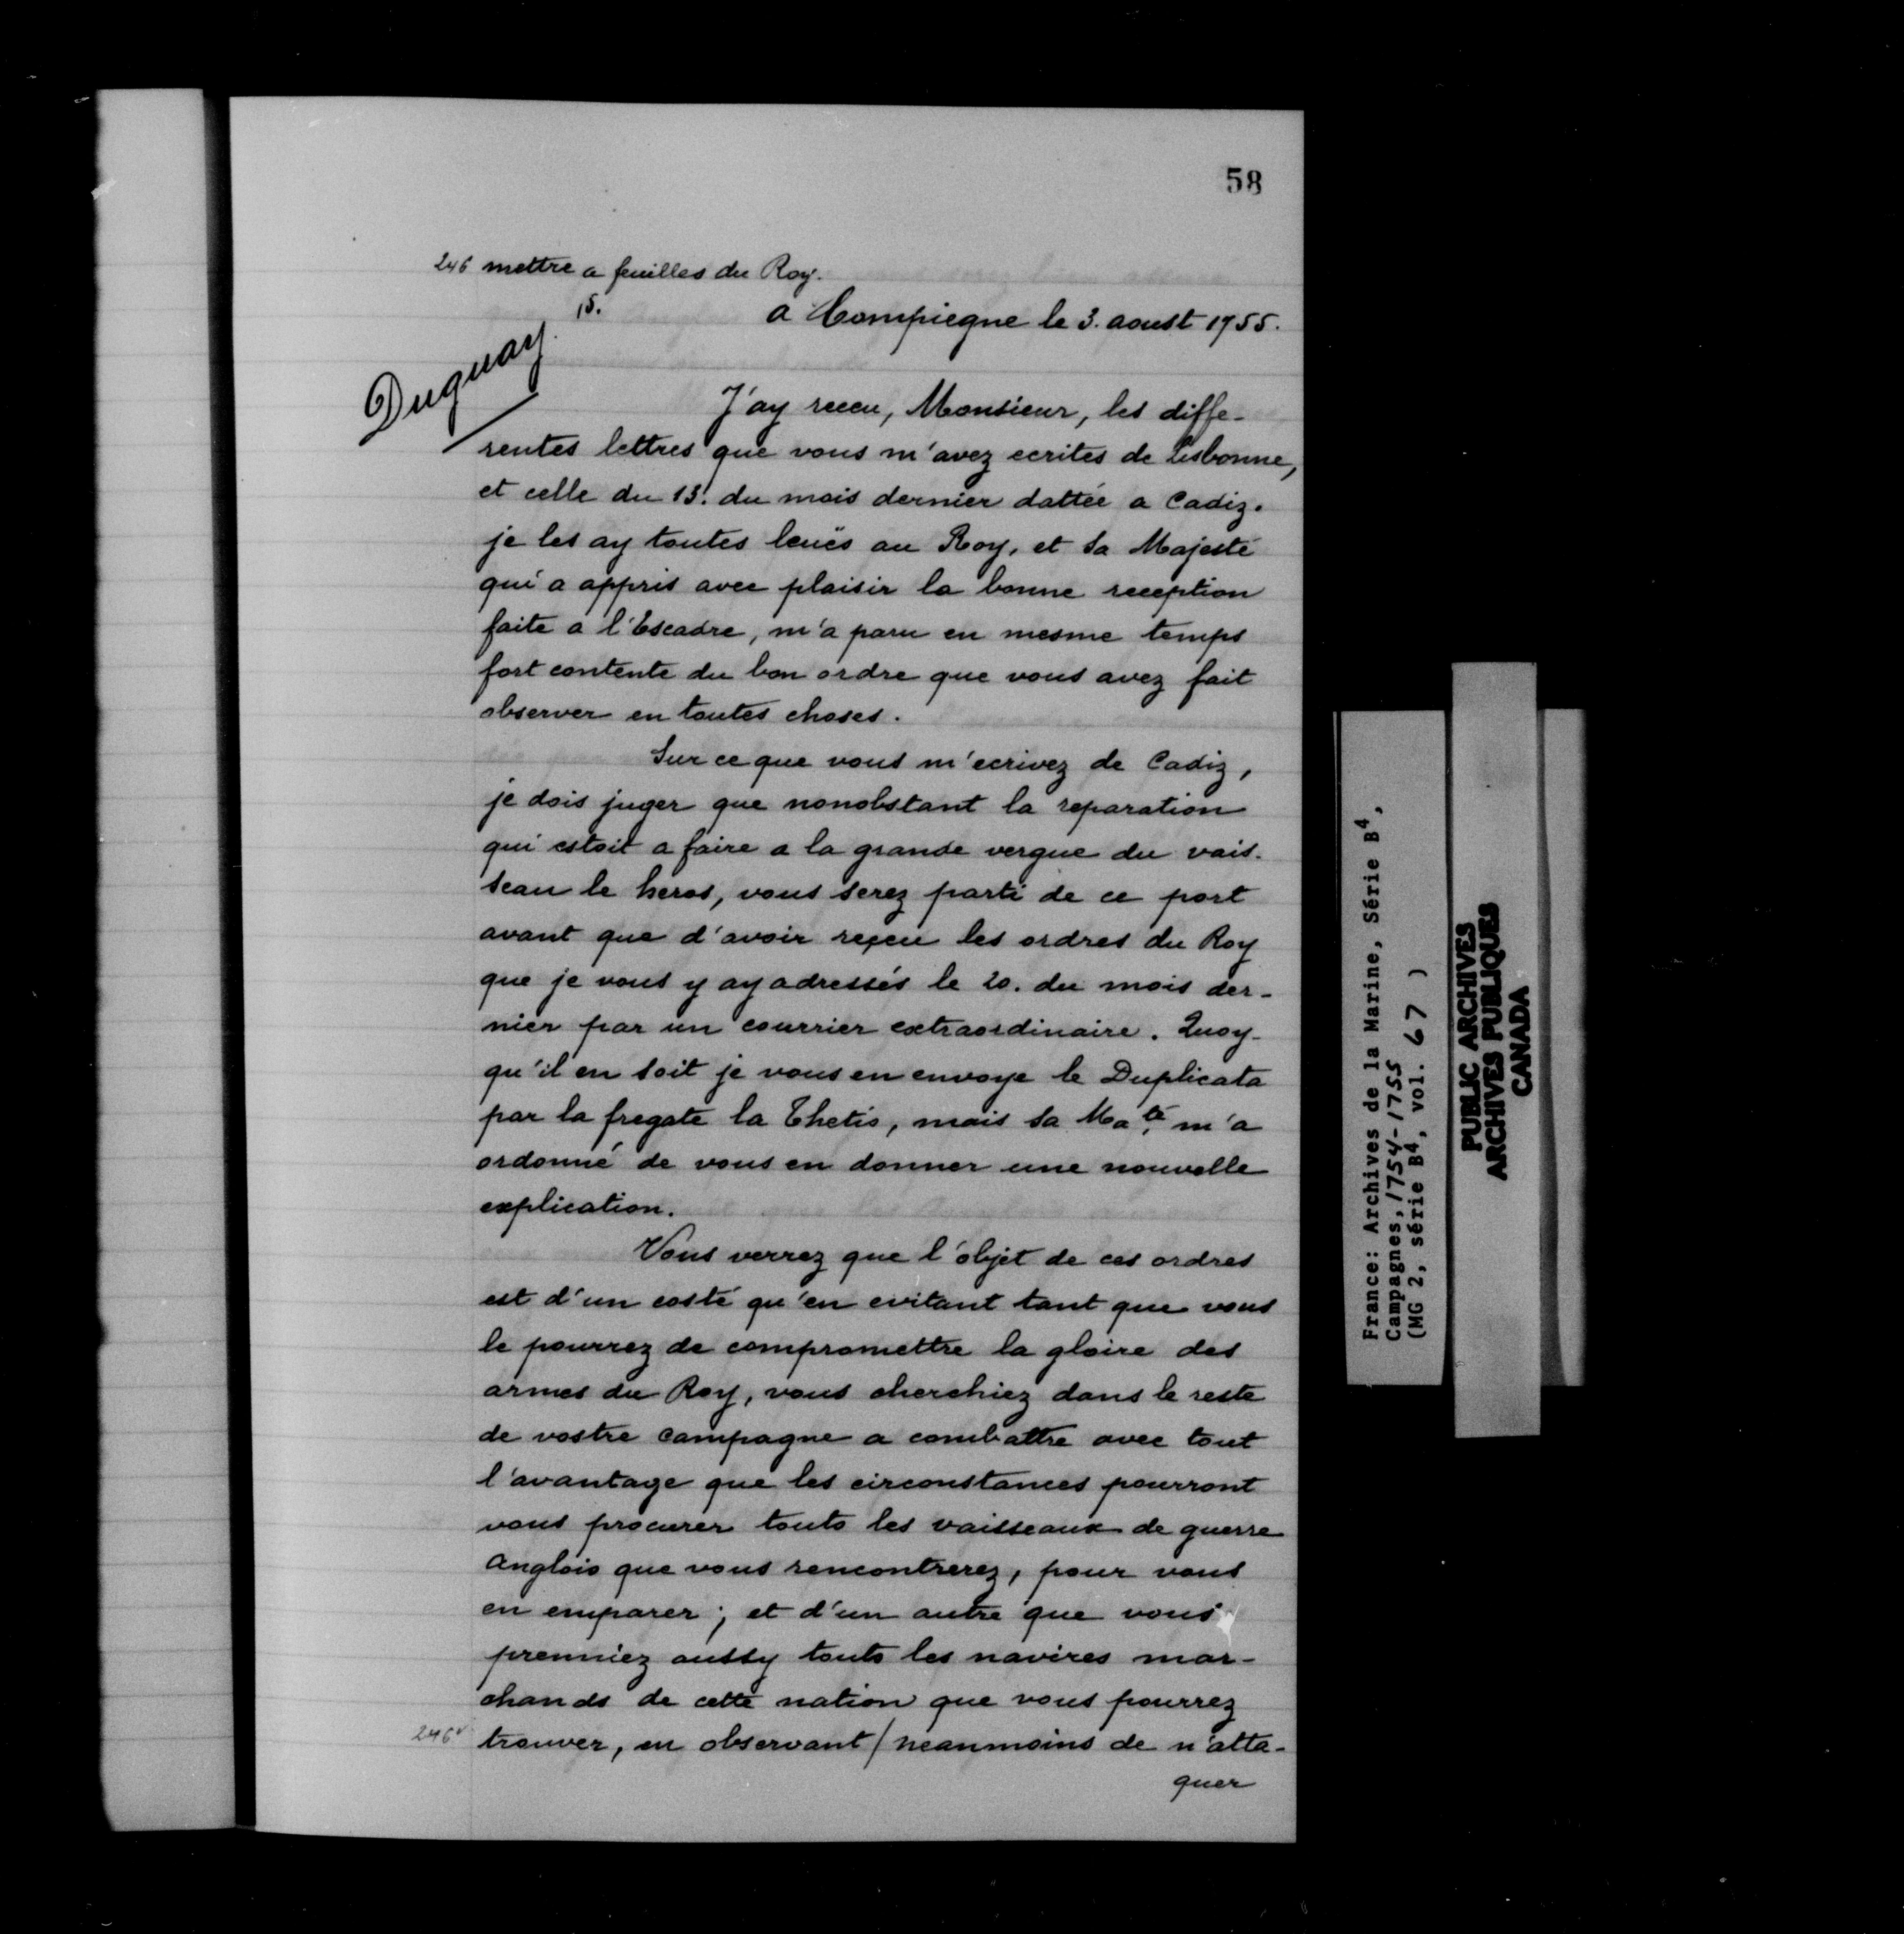 58
246 mettre a feuilles du Roy.
15.
a Compiegne le 3. aoust 1755.
Duguay
J'ay receu, Monsieur, les diffe-
rentes lettres que vous m'avez ecrites de Lisbonne,
et celle du 13. du mois dernier dattée a Cadiz.
je les ay toutes leües au Roy, et Sa Majesté
qui a appris avec plaisir la bonne reception
faite a l'Escadre, m'a paru en mesme temps
fort contente du bon ordre que vous avez fait
observer en toutes choses.
Sur ce que vous m'ecrivez de Cadiz,
je dois juger que nonobstant la reparation
qui estoit a faire a la grande vergue du vais-
seau le heros, vous serez parti de ce port
avant que d'avoir reçeu les ordres du Roy
que je vous y ay adressés le 20. du mois der-
nier par un courrier extraordinaire. Quoy-
qu'il en soit je vous en envoye le Duplicata
par la fregate la Thetis, mais sa Ma.té m'a
ordonné de vous en donner une nouvelle
explication.
Vous verrez que l'objet de ces ordres
est d'un costé qu'en evitant tant que vous
le pourrez de compromettre la gloire des
armes du Roy, vous cherchiez dans le reste
de vostre campagne a combattre avec tout
l'avantage que les circonstances pourront
vous procurer touts les vaisseaux de guerre
Anglois que vous rencontrerez, pour vous
en emparer; et d'un autre que vous
prenniez aussy touts les navires mar-
chands de cette nation que vous pourrez
246v trouver, en observant / neanmoins de n'atta-
quer
France: Archives de la Marine, Série B4,
Campagnes, 1754-1755
(MG 2, série B4, vol. 67 )
PUBLIC ARCHIVES
ARCHIVES PUBLIQUES
CANADA